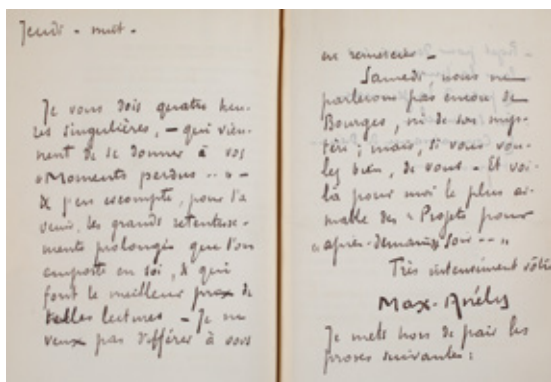 Jeudi - nuit -
Je vous dois quatre heu-
res singulières, - qui vien-
nent de se donner à vos
"Moments perdus.." -
& j'en escompte, pour l'a-
venir, les grands retentisse-
ments prolongés que l'on
emporte en soi, & qui
font le meilleur prix de
telles lectures - Je ne
veux pas différer à vous
en remercier -
Samedi, nous ne
parlerons pas encore de
Bourges, ni de son mys-
tère ; mais, si vous vou-
lez bien, de vous - Et voi-
là pour moi le plus ai-
mable des "Projets pour
"après-demain soir -- "
Très intensément vôtre
Max-Anély
Je mets hors de pair les
proses suivantes :